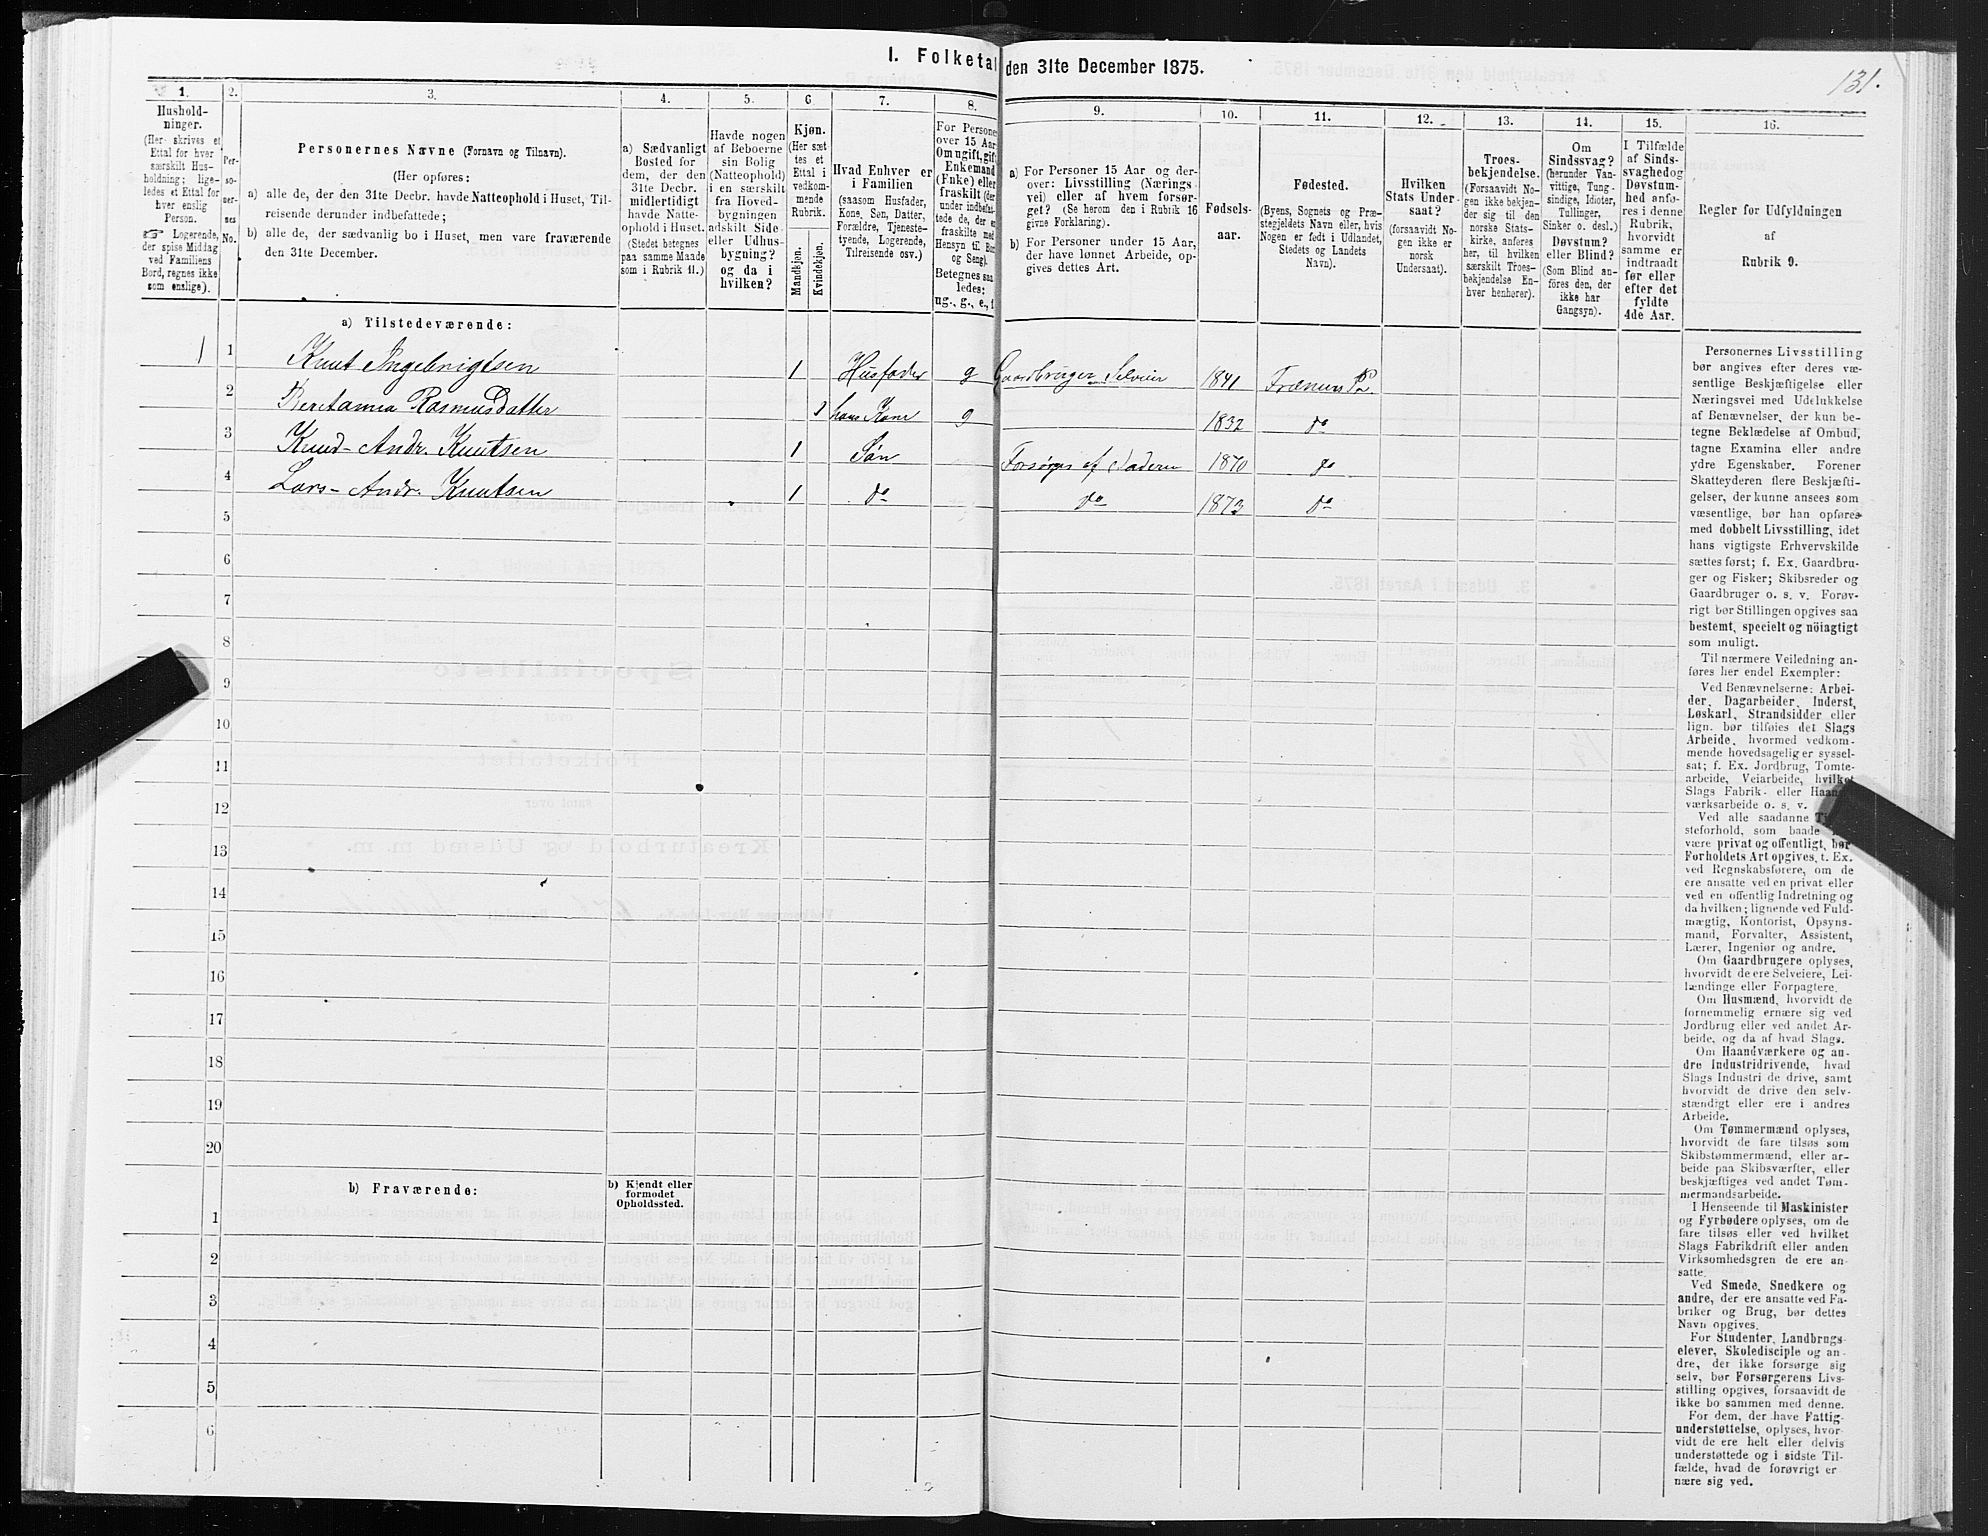 I. Folketal
den 31te December 1875.
131.
1.
Hushold-
ninger.
(Her skrives et
Ettal for hver
særskilt Hus-
holdning; lige-
ledes et Ettal for
hver enslig
Person.
☞ Logerende,
der spise Middag
ved Familiens
Bord, regnes ikke
som enslige).
2.
Per-
so-
ner-
nes
No.
3.
Personernes Navne (Fornavn og Tilnavn).
(Her opføres:
a) alle de, der den 31te Decbr. havde Natteophold i Huset, Til-
reisende derunder indbefattede;
b) alle de, der sædvanlig bo i Huset, men vare fraværende
den 31te December.
4.
a) Sædvanligt
Bosted for
dem, der den
31te Decbr.
midlertidigt
havde Natte-
ophold i Huset.
(Stedet betegnes
paa samme Maade
som i Rubrik 11.)
5.
Havde nogen
af Beboerne
sin Bolig
(Natteophold)
i en særskilt
fra Hoved-
bygningen
adskilt Side-
eller Udhus-
bygning?
og da i
hvilken?
6.
Kjøn.
(Her sæt
tes et
Ettal i
vedkom-
mende
Rubrik.
Mandkjøn.
Kvindekjøn.
7.
Hvad Enhver er
i Familien
(saasom Husfader,
Kone, Søn, Datter,
Forældre, Tjeneste-
tyende, Logerende,
Tilreisende osv.)
8.
For Persone
over 15 Aar
Om ugift, gift
Enkemand
(Enke) eller
fraskilt (der
under indbefat-
tede de, der e
fraskilte med
Hensyn til Bor
og Seng).
Betegnes saa
ledes:
ug., g., e., f
9.
a) For Personer 15 Aar og der-
over: Livsstilling (Nærings-
vei) eller af hvem forsør-
get? (Se herom den i Rubrik 16
givne Forklaring).
b) For Personer under 15 Aar,
der have lønnet Arbeide, op-
gives dettes Art.
10.
Fødsels-
aar.
11.
Fødested.
(Byens, Sognets og Præ-
stegjeldets Navn eller, hvis
Nogen er født i Udlandet,
Stedets og Landets
Navn).
12.
Hvilken
Stats Under-
saat?
(forsaavidt No-
gen ikke er
norsk
Undersaat).
13.
Troes-
bekjendelse.
(Forsaavidt No-
gen ikke bekjen-
der sig til den
norske Stats-
kirke, anføres
her, til hvilken
særskilt Troes-
bekjendelse En-
hver henhører).
14.
Om
Sindssvag?
(herunder Van-
vittige, Tung-
sindige, Idioter,
Tullinger,
Sinker o. desl.)
Døvstum?
eller Blind?
(Som Blind an-
føres den, der
ikke har
Gangsyn).
15.
I Tilfælde
af Sinds-
svaghed og
Døvstum-
hed anfø-
res i denne
Rubrik,
hvorvidt
samme er
indtraadt
før eller
efter det
fyldte
4de Aar.
16.
Regler for Udfyldningen
af
Rubrik 9.
a) Tilstedeværende:
1 1 Knut Ingebrigtsen 1 Husfader g Gaardbruger Selveier 1841 Frænens P.
2 Beretanna Rasmusdatter 1 hans Kone g 1832 do
3 Knud-Andr. Knutsen 1 Søn Forsørges af Faderen 1870 do
4 Lars-Andr. Knutsen 1 do do 1873 do
5
6
7
8
9
10
11
12
13
14
15
16
17
18
19
20
b) Fraværende:
b) Kjendt eller
formodet
Opholdssted.
1
2
3
4
5
6
Personernes Livsstilling
bør angives efter deres væ-
sentlige Beskjæftigelse eller
Næringsvei med Udelukkelse
af Benævnelser, der kun be-
tegne Beklædelse af Ombud,
tagne Examina eller andre
ydre Egenskaber. Forener
Skatteyderen flere Beskjæfti-
gelser, der kunne ansees som
væsentlige, bør han opføres
med dobbelt Livsstilling, idet
hans vigtigste Erhvervskilde
sættes først; f. Ex. Gaardbru-
ger og Fisker; Skibsreder og
Gaardbruger o. s. v. Forøv-
rigt bør Stillingen opgives saa
bestemt, specielt og nöiagtigt
som muligt.
Til nærmere Veiledning an-
føres her endel Exempler:
Ved Benævnelserne: Arbei-
der, Dagarbeider, Inderst,
Løskarl, Strandsidder eller
lign. bør tilføies det Slags
Arbeide, hvormed vedkom-
mende hovedsagelig er syssel-
sat; f. Ex. Jordbrug, Tomte-
arbeide, Veiarbeide, hvilket
Slags Fabrik- eller Haand-
værksarbeide o. s. v.
Ved alle saadanne
steforhold, som baade
være privat og offentligt, bør
Forholdets Art opgives, t. Ex.
ved Regnskabsførere, om de
ere ansatte ved en privat eller
ved en offentlig Indretning og
da hvilken; lignende ved Fuld-
mægtig, Kontorist, Opsyns-
mand, Forvalter, Assistent,
Lærer, Ingeniør og andre.
Om Gaardbrugere oplyses,
hvorvidt de ere Selveiere, Lei-
lændinge eller Forpagtere.
Om Husmænd, hvorvidt de
fornemmelig ernære sig ved
Jordbrug eller ved andet Ar-
beide, og da af hvad Slags.
Om Haandværkere og an-
dre Industridrivende, hvad
Slags Industri de drive, samt
hvorvidt de drive den selv-
stændigt eller ere i andres
Arbeide.
Om Tømmermænd oplyses,
hvorvidt de fare tilsøs som
Skibstømmermænd, eller ar-
beide paa Skibsværfter, eller
beskjæftiges ved andet Tøm-
mermandsarbeide.
I Henseende til Maskinister
og Fyrbødere oplyses, om de
fare tilsøs eller ved hvilket
Slags Fabrikdrift eller anden
Virksomhedsgren de ere an-
satte.
Ved Smede, Snedkere og
andre, der ere ansatte ved Fa-
briker og Brug, bør dettes
Navn opgives.
For Studenter, Landbrugs-
elever, Skoledisciple og an-
dre, der ikke forsørge sig
selv, bør Forsørgerens Livs-
stilling opgives, forsaavidt de
ikke bo sammen med denne.
For dem, der have Fattig-
understøttelse, oplyses, hvor-
vidt de ere helt eller delvis
understøttede og i sidste Til-
fælde, hvad de forøvrigt er
nære sig ved.